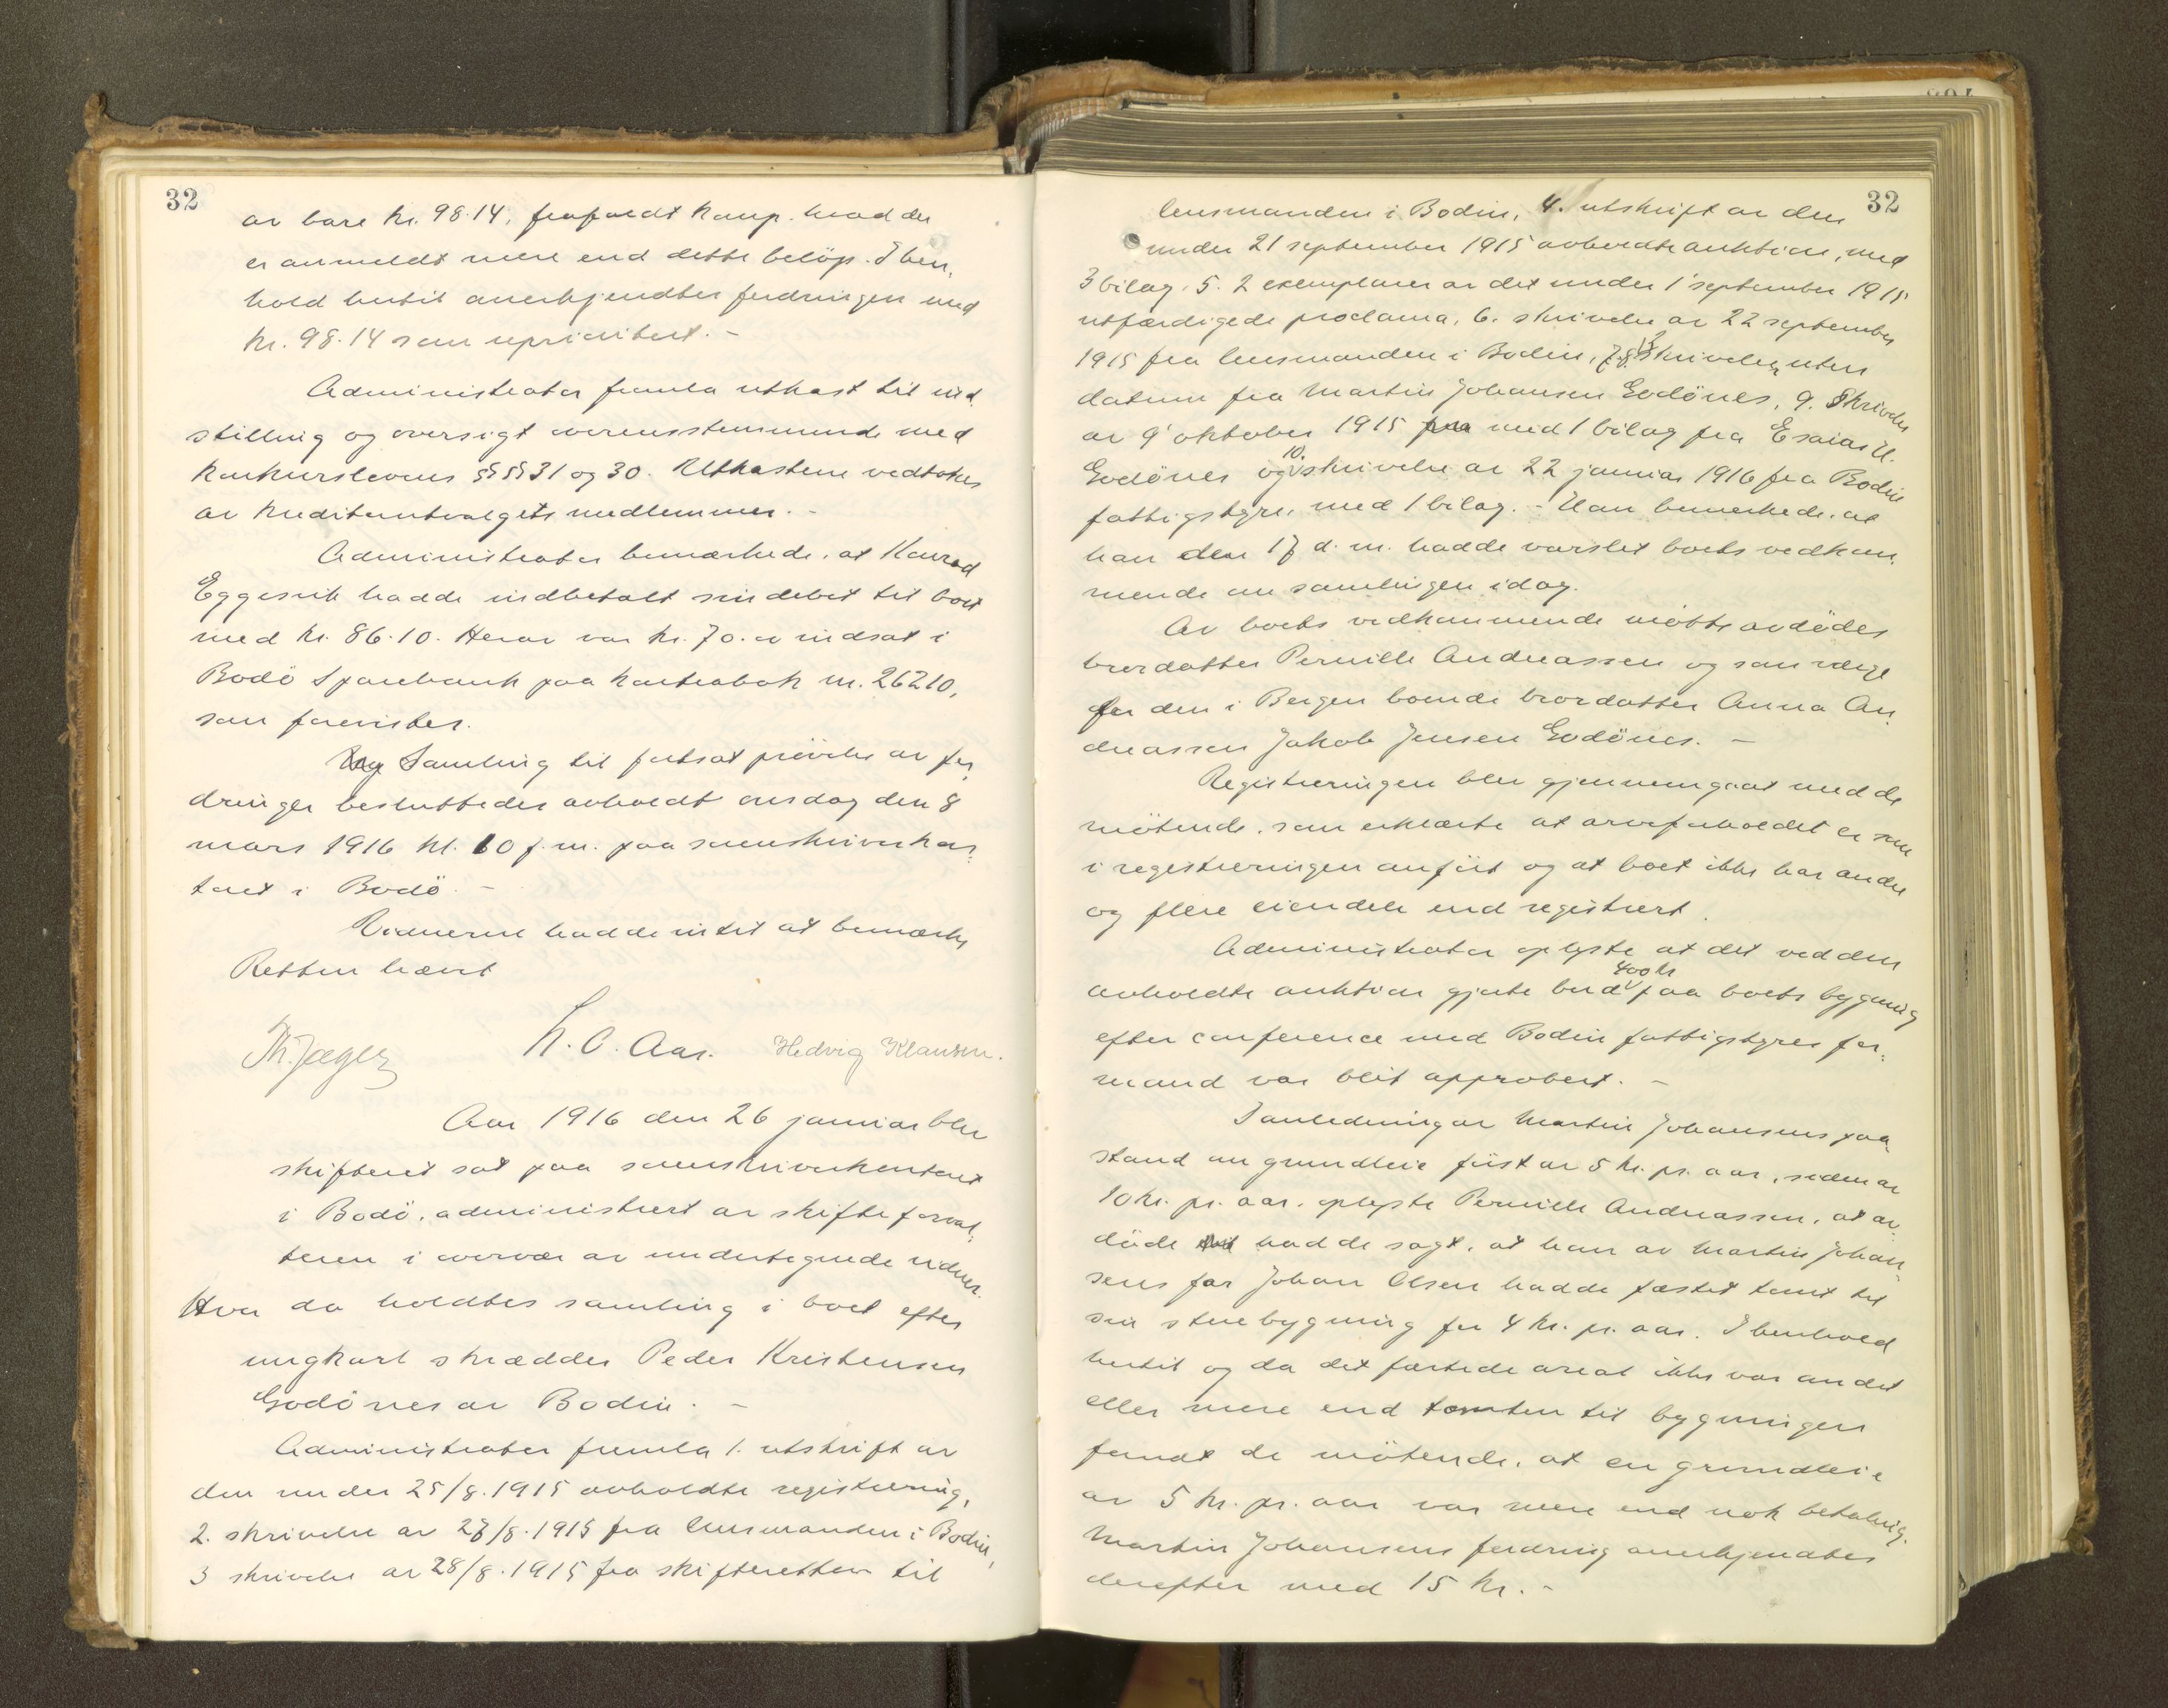 32
av bare kr. 98.14, frafaldt Kaup. hvad der
er anmeldt mere end dette beløp. I hen-
hold hertil anerkjendtes fordringen med
kr. 98.14 som uprioritert. -
Administrator fremla utkast til ind-
stilling og oversigt overensstemmende med
konkurslovens §§ 31 og 30. Utkastene vedtokes
av kreditorutvalgets medlemmer. -
Administrator bemærkede, at Konrad
Eggesvik hadde indbetalt sin debet til boet
med kr. 86.10. Herav var kr. 70.- indsat i
Bodö Sparebank paa kontrabok nr. 26210,
som forevistes.
Samling til fortsat prövelse av for-
dringer besluttedes avholdt onsdag den 8
mars 1916 kl. 10 f.m. paa sorenskriverkon-
toret i Bodö. -
Vidnerne hadde intet at bemærke
Retten hævet
Th. Jæger K. O. Aas. Hedvig Klausen.
Aar 1916 den 26 januar blev
skifteret sat paa sorenskriverkontoret
i Bodö, administrert av skifteforval-
teren i overvær av undertegnede vidner.
Hvor da holdtes samling i boet efter
ungkarl skrædder Peder Kristensen
Godönes av Bodin. -
Administrator fremla 1. utskrift av
den under 25/8. 1915 avholdte registrering,
2. skrivelse av 27/8. 1915 fra lensmanden i Bodin,
3 skrivelse av 28/8. 1915 fra skifteretten til
32
lensmanden i Bodin, 4. utskrift av den
under 21 september 1915 avholdte auktion, med
3 bilag. 5. 2 exemplarer av det under 1 september 1915
utfærdigede proclama, 6. skrivelse av 22 september
1915 fra lensmanden i Bodin, 7. 8. 2 skrivelser uten
datum fra Martin Johansen Godönes, 9. Skrivelse
av 9 oktober 1915 med 1 bilag fra Esaias U.
Godönes og 10. skrivelse av 22 januar 1916 fra Bodin
fattigstyre, med 1 bilag. - Han bemerkede, at
han den 17 d. m. hadde varslet boets vedkom-
mende om samlingen idag.
Av boets vedkommende mötte avdödes
brordatter Pernille Andreassen og som verge
for den i Bergen boende brordatter Anna An-
dreassen Jakob Jensen Godönes. -
Registreringen blev gjennemgaat med de
mötende, som erklærte at arveforholdet er som
i registreringen anfört og at boet ikke har andre
og flere eiendele end registrert.
Administrator oplyste at det ved den
avholdte auktion gjorte bud 400 kr paa boets bygning
efter conference med Bodin fattigstyres for-
mand var blit approbert. -
I anledning av Martin Johansens paa-
stand om grundleie först av 5 kr. pr. aar, siden av
10 kr. pr. aar, oplyste Pernille Andreassen, at av-
döde hadde sagt, at han av Martin Johan-
sens far Johan Olsen hadde fæstet tomt til
sin stuebygning for 4 kr. pr. aar. I henhold
hertil og da det fæstede areal ikke var andet
eller mere end tomten til bygningen
fandt de mötende, at en grundleie
av 5 kr. pr. aar var mere end nok betaling.
Martin Johansens fordring anerkjendtes
derefter med 15 kr. -